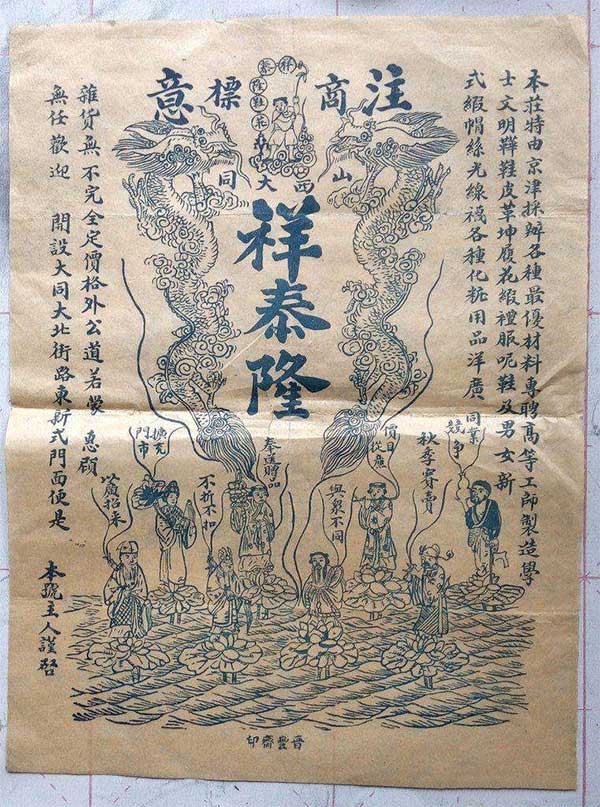 注商標意
祥泰隆鞋
山西大同
祥泰隆
本莊特由京津採辦各種最優材料專聘高等工師製造學
士文明鞾鞋皮革坤履花緞禮服呢鞋及男女新
式緞帽絲光線襪各種化粧用品洋廣
雜貨無不完全定價格外公道若蒙 惠顧
無任歡迎 開設大同大北街路東新式門面便是
本號主人謹啓
同業
競爭
秋季賣
價目
從廉
與眾不同
奉送贈品
不折不扣
擴充
門市
以廣招來
晉豐齋印